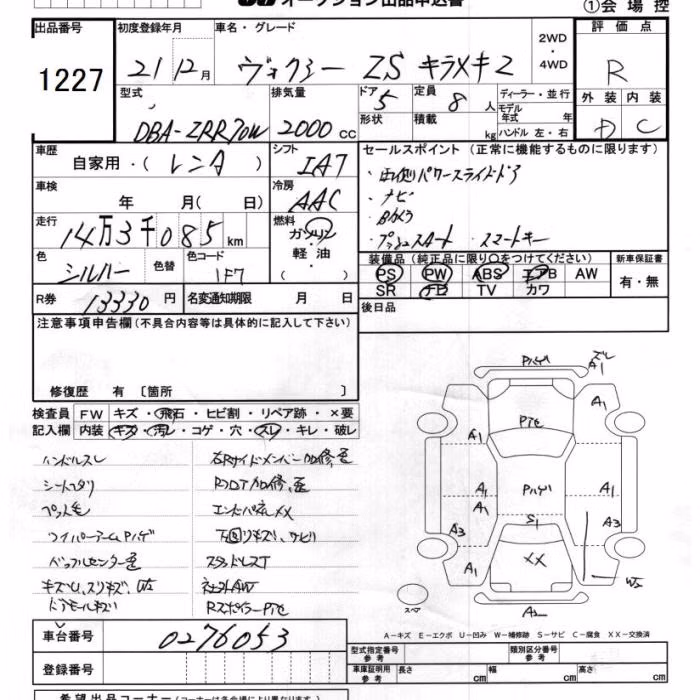 オークション出品申込書
①会場控
出品番号 初度登録年月 車名・グレード 2WD ・ 4WD 評価点
1227 21 12月 ヴォクシー ZS キラメキ2 R
型式 排気量 ドア 5 定員 8 人 ディーラー・並行 外装 内装
DBA-ZRR70W 2000 cc 形状 積載 kg モデル年式 年 ハンドル 左・右 D C
車歴 シフト セールスポイント (正常に機能するものに限ります)
自家用・(レンタ) IA7 ・両側パワースライドドア
車検 冷房 ・ナビ
年 月( 日) AAC ・Bカメラ
走行 燃料 ・プッシュスタート ・スマートキー
14万3千085km ガソリン・軽油・( )
色 色替 色コード 装備品 (純正品に限り○をつけてください) 新車保証書
シルバー 1F7 PS PW ABS エアB AW 有・無
SR TV カワ
R券 13330円 名変通知期限 月 日 後日品
注意事項申告欄(不具合内容等は具体的に記入して下さい)
修復歴 有 〔箇所 〕
検査員 FW キズ・飛石・ヒビ割・リペア跡・×要
記入欄 内装 キズ・汚レ・コゲ・穴・スレ・キレ・破レ
ハンドルスレ
シートヘタリ
ワイパーアームPハゲ
ドアモールキズ
エンドパネXX
スタッドレスT
社外AW
RスポイラーPヤセ
Pハゲ ズレ A1
A1 A1 Pヤセ
A1 A1 Pハゲ A1
S1
A3 A3
A1 XX A1
スペア A2 W3
A-キズ E-エクボ U-凹み W-補修跡 S-サビ C-腐食 XX-交換済
車台番号 0276053
登録番号
型式指定番号 参考 類別区分番号 参考
車庫証明用 参考 長さ cm 幅 cm 高さ cm
希望出品コーナー (コーナーは各会場により異なります)